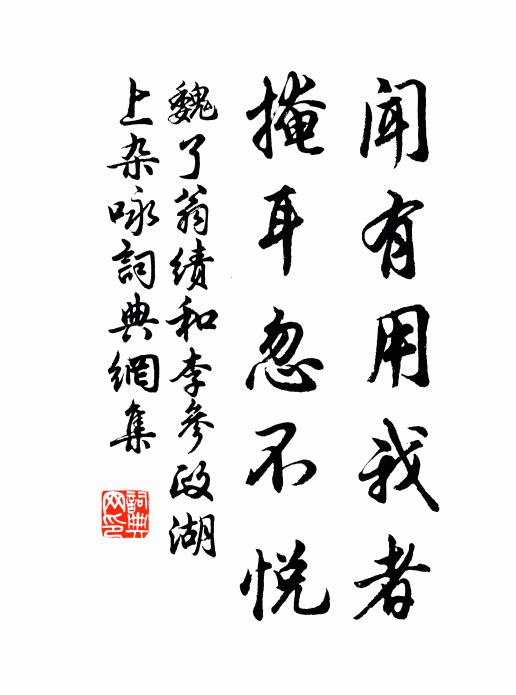 闻有用我者
掩耳忽不悦
魏了翁续和李参政湖
上杂咏词典网集
詞典
网印